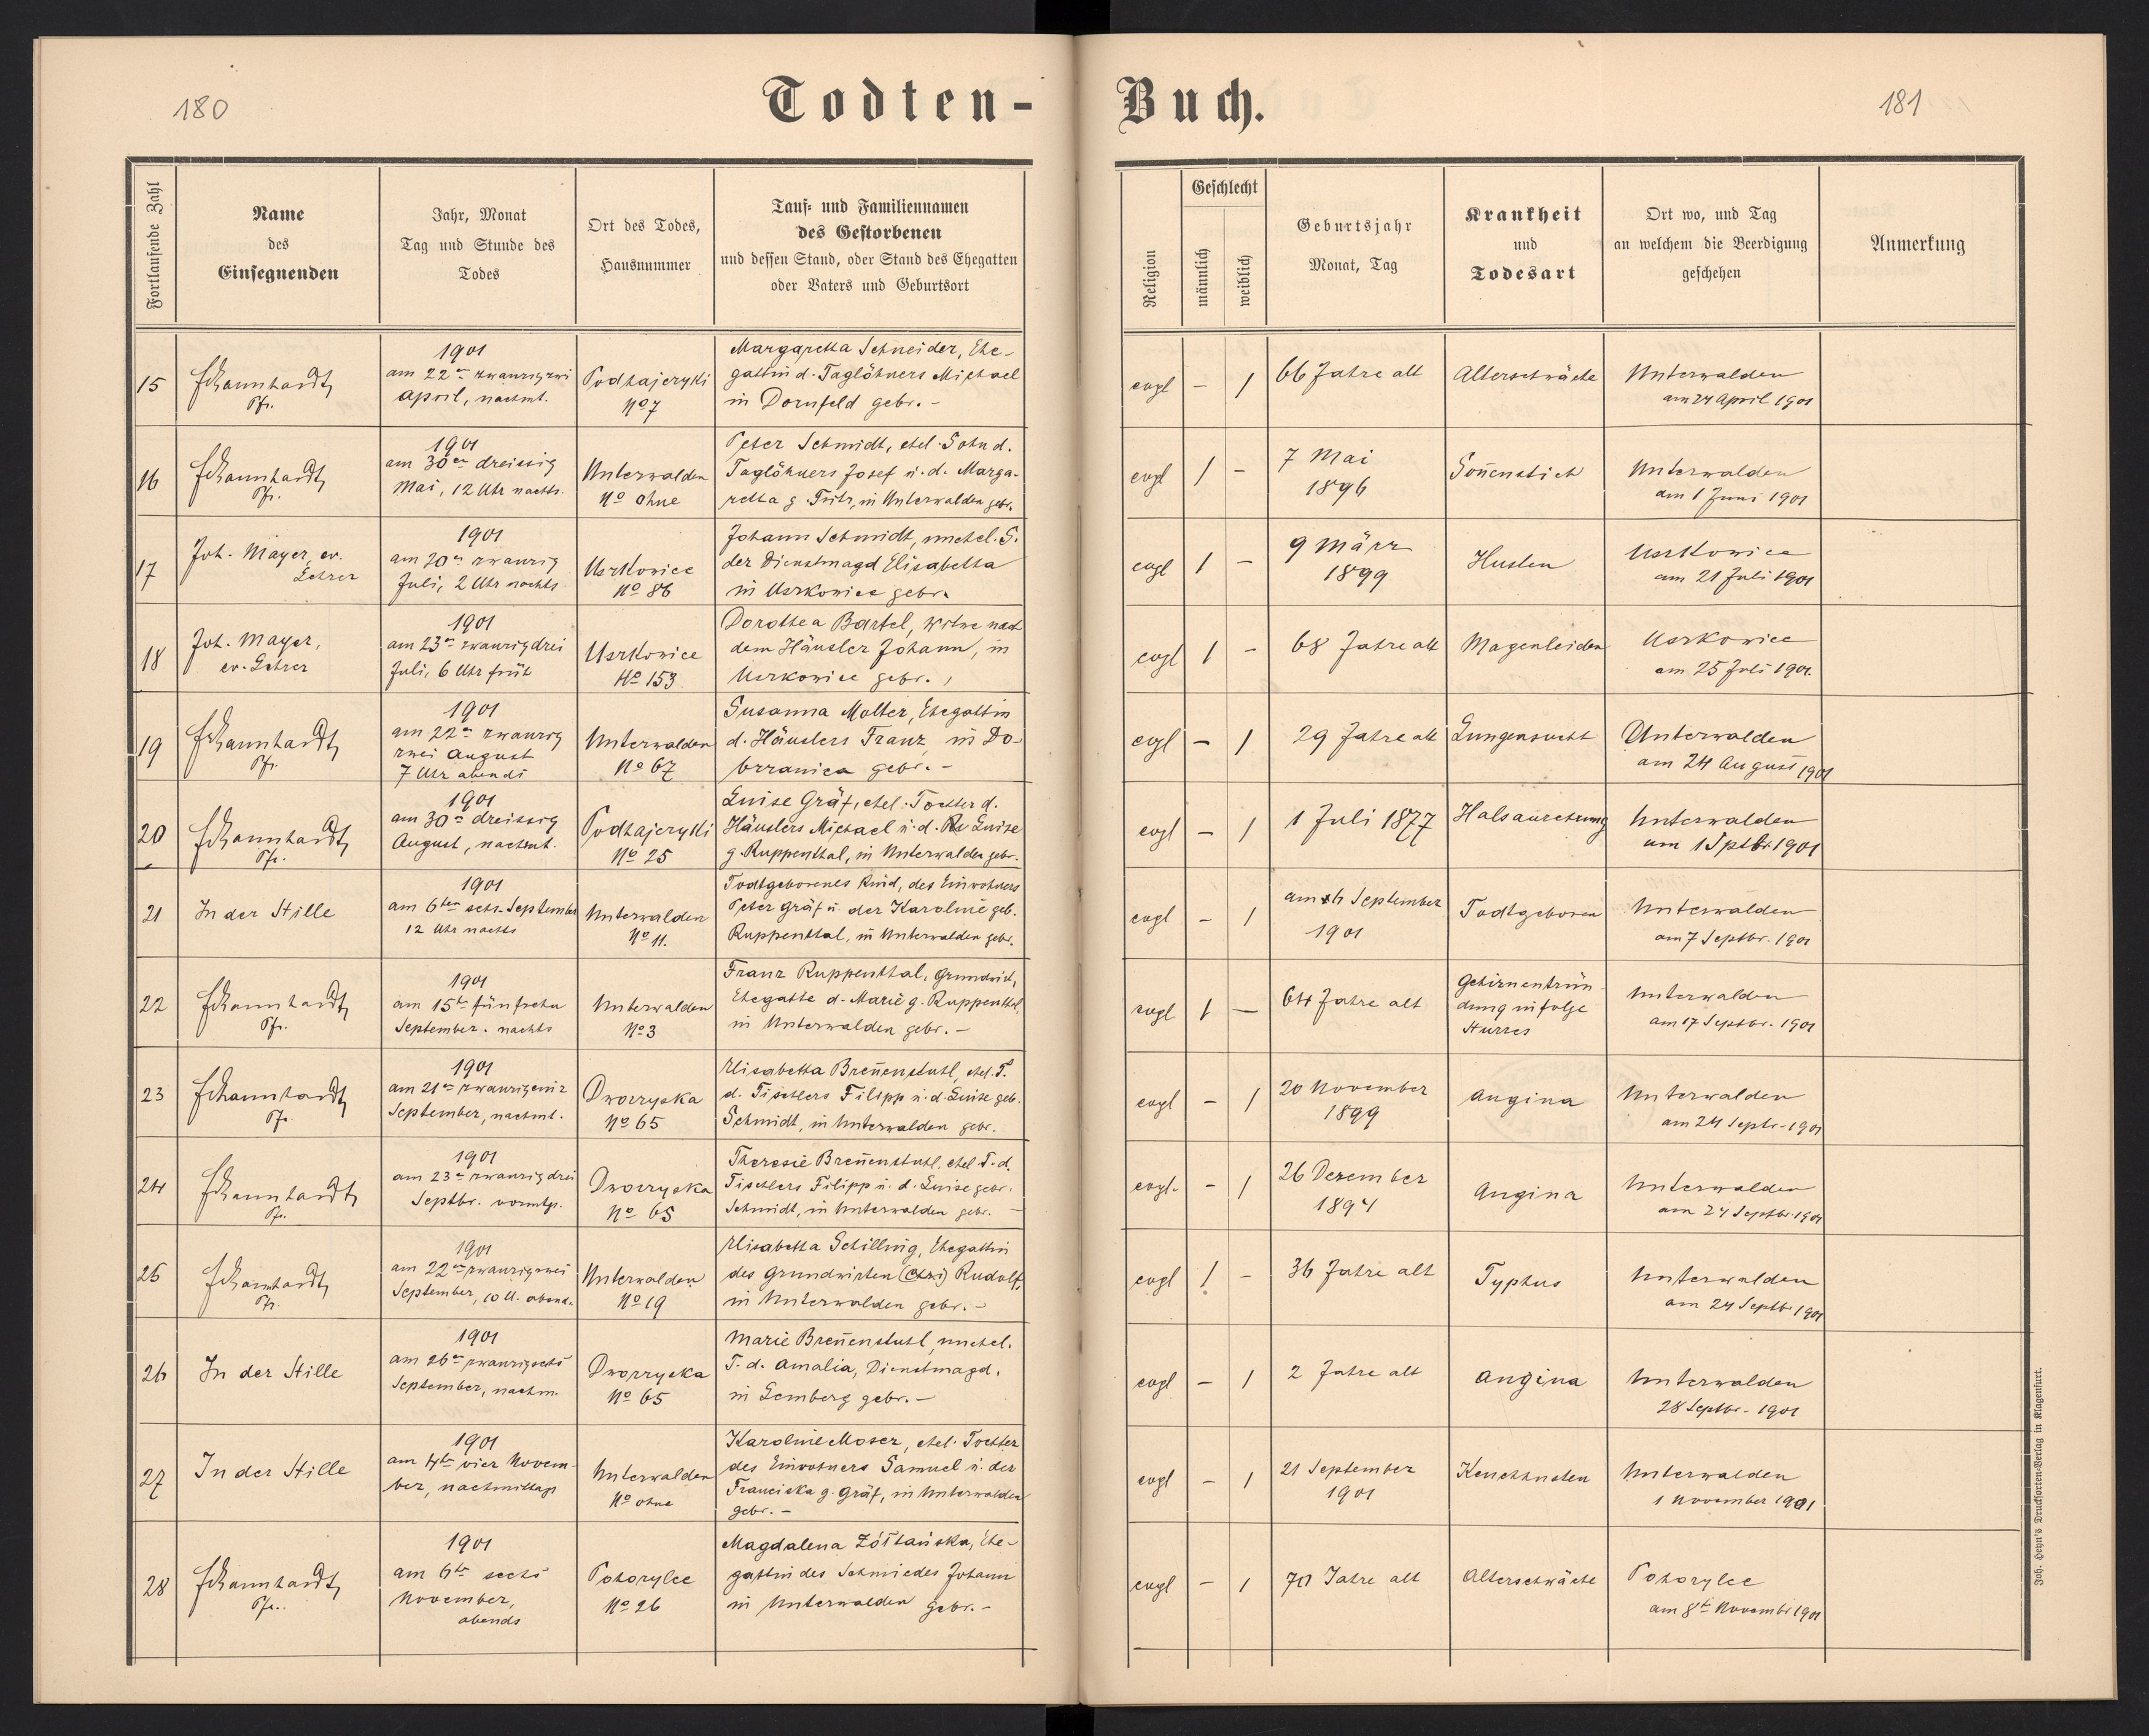 180
Todten-
Buch.
181
Fortlaufende Zahl
Name
des
Einsegnenden
Jahr, Monat
Tag und Stunde des
Todes
Ort des Todes,
Hausnummer
Tauf- und Familiennamen
des Gestorbenen
und dessen Stand, oder Stand des Ehegatten
oder Vaters und Geburtsort
Religion
Geschlecht
männlich
weiblich
Geburtsjahr
Monat, Tag
Krankheit
und
Todesart
Ort wo, und Tag
an welchem die Beerdigung
geschehen
Anmerkung
15
Pfr.
1901
am 22
April, nachmt.
Podhajczyki
No 7
Margaretha Schneider, Ehe-
gattin d. Taglöhners Michael
in Dornfeld gebr. -
evgl
-
1
66 Jahre alt
Altersschwäche
Unterwalden
am 24 April 1901
16
Pfr.
1901
am 30 dreissig
Mai, 12 Uhr nachts.
Unterwalden
No ohne
Peter Schmidt, ehel. Sohn d.
Taglöhners Josef u. d. Marga-
retha g. Fritz, in Unterwalden gebr.
evgl
1
-
7 Mai
1896
Soñenstich
Unterwalden
am 1 Juni 1901
17
Joh. Mayer, ev.
Lehrer
1901
am 20 zwanzig
Juli, 2 Uhr nachts
Uszkowice
No 86
Johann Schmidt, unehel. S.
der Dienstmagd Elisabetha
in Uszkowice gebr.
evgl
1
-
9 März
1899
Husten
Uszkowice
am 21 Juli 1901
18
Joh. Mayer,
ev. Lehrer
1901
am 23 zwanzigdrei
Juli, 6 Uhr früh
Uszkowice
No 153
Dorothea Bartel, Witwe nach
dem Häusler Johann, in
Uszkowice gebr.
evgl
1
-
68 Jahre alt
Magenleiden
Uszkowice
am 25 Juli 1901.
19
Pfr.
1901
am 22 zwanzig
zwei August
7 Uhr abends
Unterwalden
No 67
Susanna Molter, Ehegattin
d. Häuslers Franz, in Do-
brzanica gebr. -
evgl
-
1
29 Jahre alt
Lungensucht
Unterwalden
am 24 August 1901
20
Pfr.
1901
am 30 dreissig
August, nachmt.
Podhajczyki
No 25
Luise Gräf, ehel. Tochter d.
Häuslers Michael u. d. Luise
g. Ruppenthal, in Unterwalden gebr.
evgl
-
1
1 Juli 1877
Halsauszehrung
Unterwalden
am 1 Sptbr 1901
21
In der Stille
1901
am 6ten sechs September
12 Uhr nachts
Unterwalden
No 11.
Todtgeborenes Kind, des Einwohners
Peter Gräf u. der Karoline geb.
Ruppenthal, in Unterwalden gebr.
evgl
-
1
am 6 September
1901
Todtgeboren
Unterwalden
am 7 Septbr. 1901
22
Pfr.
1901
am 15 fünfzehn
September. nachts
Unterwalden
No 3
Franz Ruppenthal, Grundwirt,
Ehegatte d. Marie g. Ruppenthal,
in Unterwalden gebr. -
evgl
1
-
64 Jahre alt
Gehirnentzün-
dung infolge
Sturzes
Unterwalden
am 17 Septbr. 1901
23
Pfr.
1901
am 21 zwanzigeins
September, nachmt.
Dworzyska
No 65
Elisabetha Breñenstuhl, ehel. T.
d. Tischlers Filipp u. d. Luise geb.
Schmidt, in Unterwalden gebr.
evgl
-
1
20 November
1899
Angina
Unterwalden
am 24 Septr. 1901
24
Pfr.
1901
am 23 zwanzigdrei
Septbr. vormtg.
Dworzyska
No 65
Theresie Breñenstuhl, ehel. T. d.
Tischlers Filipp u. d. Luise gebr.
Schmidt, in Unterwalden gebr. -
evgl.
-
1
26 Dezember
1894
Angina
Unterwalden
am 24 Septbr 1901
25
Pfr.
1901
am 22 zwanzigzwei
September, 10 U. abends
Unterwalden
No 19
Elisabetha Schilling, Ehegattin
des Grundwirten Rudolf,
in Unterwalden gebr. -
evgl
1
-
36 Jahre alt
Typhus
Unterwalden
am 24 Septbr 1901
26
In der Stille
1901
am 26 zwanzigsechs
September, nachm.
Dworzyska
No 65
Marie Breñenstuhl, unehel.
T. d. Amalia, Dienstmagd.
in Lemberg gebr. -
evgl
-
1
2 Jahre alt
Angina
Unterwalden
28 Septbr. 1901
27
In der Stille
1901
am 4 vier Novem-
ber, nachmittags
Unterwalden
No ohne
Karoline Moser, ehel. Tochter
des Einwohners Samuel u. der
Franciska g. Gräf, in Unterwalden
gebr. -
evgl
-
1
21 September
1901
Keuchhusten
Unterwalden
1 November 1901
28
Pfr.
1901
am 6 sechs
November,
abends
Pohorylce
No 26
Magdalena Żółtańska, Ehe-
gattin des Schmiedes Johann
in Unterwalden gebr. -
evgl
-
1
70 Jahre alt
Altersschwäche
Pohorylce
am 8 Novembr 1901
Joh. Heyn's Drucksorten-Verlag in Klagenfurt.